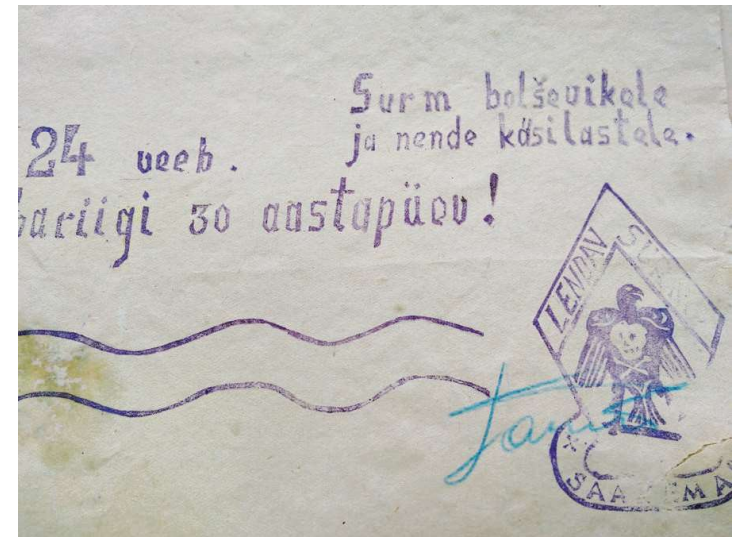 Surm bolševikele
ja nende käsilastele.
24 veeb.
bariigi 30 aastapäev!
LENDAV SURNU
SAAREMAA